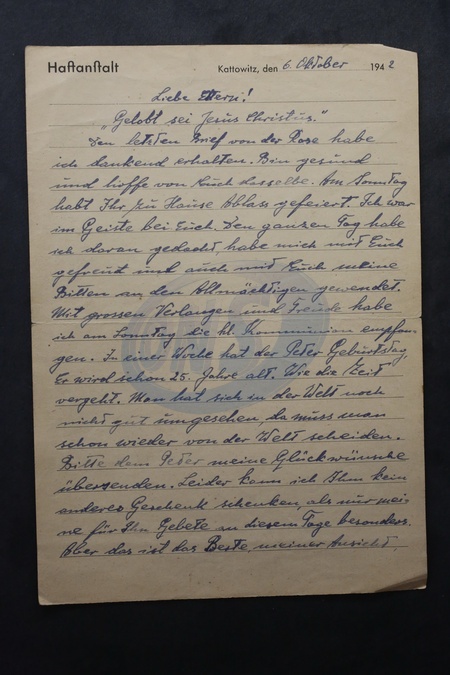 Haftanstalt
Kattowitz, den 6. Oktober 1942
Liebe !
"Gelobt sei Jesus Christus."
Den letzten Brief von der Rose habe
ich dankend erhalten. Bin gesund
und hoffe von Euch dasselbe. Am Sonntag
habt Ihr zu Hause Ablass gefeiert. Ich war
im Geiste bei Euch. Den ganzen Tag habe
ich daran gedacht, habe mich mit Euch
gefreut und auch mit Euch meine
Bitten an den Allmächtigen gewendet.
Mit grossen Verlangen und Freude habe
ich am Sonntag die hl. Kommunion empfan-
gen. In einer Woche hat der Peter Geburtstag,
Er wird schon 25. Jahre alt. Wie die Zeit
vergeht. Man hat sich in der Welt noch
nicht gut umgesehen, da muss man
schon wieder von der Welt scheiden.
Bitte dem Peter meine Glückwünsche
übersenden. Leider kann ich Ihm kein
anderes Geschenk schenken, als nur mei-
ne für Ihn Gebete an diesem Tage besonders.
Aber das ist das Beste, meiner Ansicht,